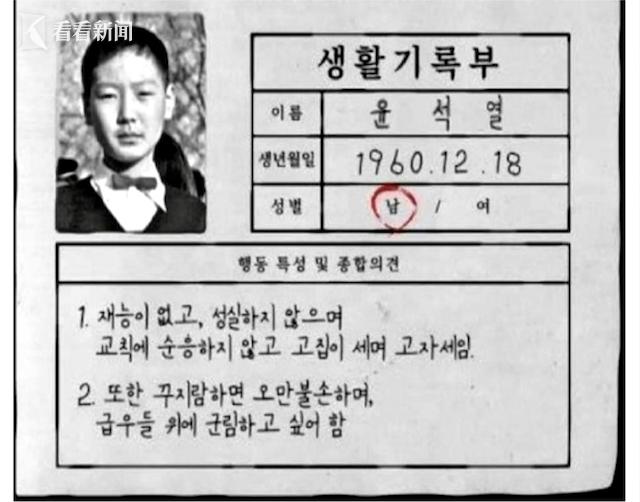 看看新闻
생활기록부
이름 윤 석 열
생년월일 1960.12.18
성별 남 / 여
행동 특성 및 종합의견
1. 재능이 없고, 성실하지 않으며
교칙에 순응하지 않고 고집이 세며 고자세임.
2. 또한 꾸지람하면 오만불손하며,
급우들 위에 군림하고 싶어 함